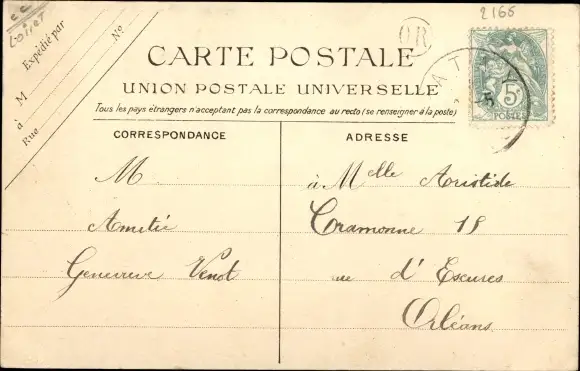 Loiret
2166
Expédié par
No
M
à
Rue
OR
CARTE POSTALE
UNION POSTALE UNIVERSELLE
Tous les pays étrangers n'acceptant pas la correspondance au recto (se renseigner à la poste)
5c
POSTES
CORRESPONDANCE
ADRESSE
M
Amitié
Genevieve Venot
à Melle Aristide
Cramonne 18
rue d'Escures
Orléans